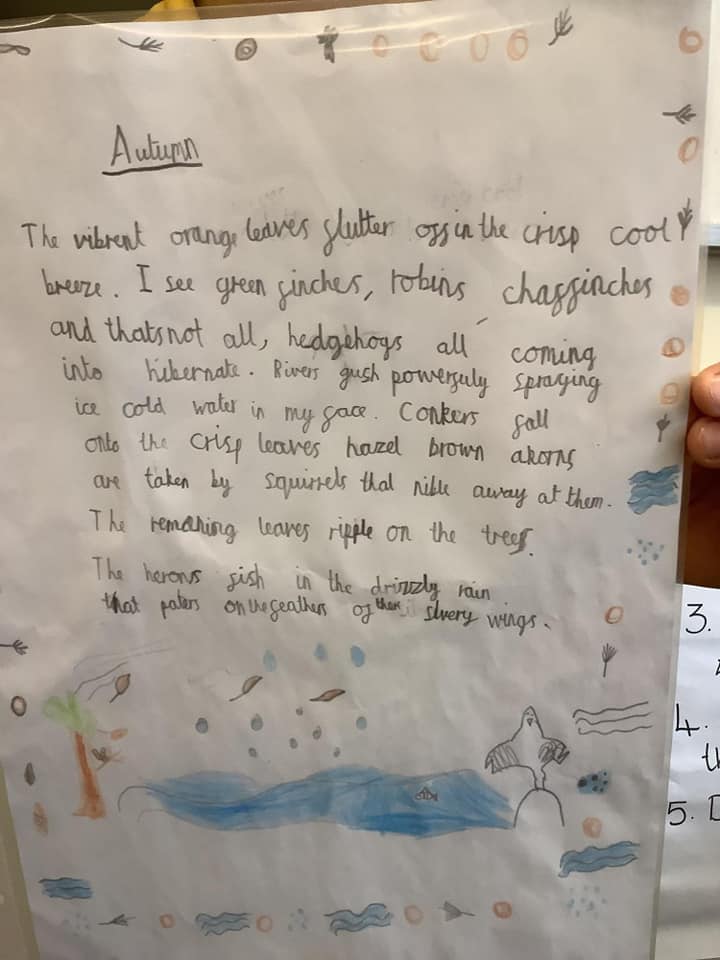 Autumn
The vibrent orange leaves flutter off in the crisp cool
breeze. I see green finches, robins chaffinches
and thats not all, hedgehogs all coming
into hibernate. Rivers gush powerfuly spraying
ice cold water in my face. Conkers fall
onto the crisp leaves hazel brown akorns
are taken by squirrels that nible away at them.
The remaining leaves ripple on the trees.
The herons fish in the drizzly rain
that paters on the feathers of their slvery wings.
3.
4.
5.